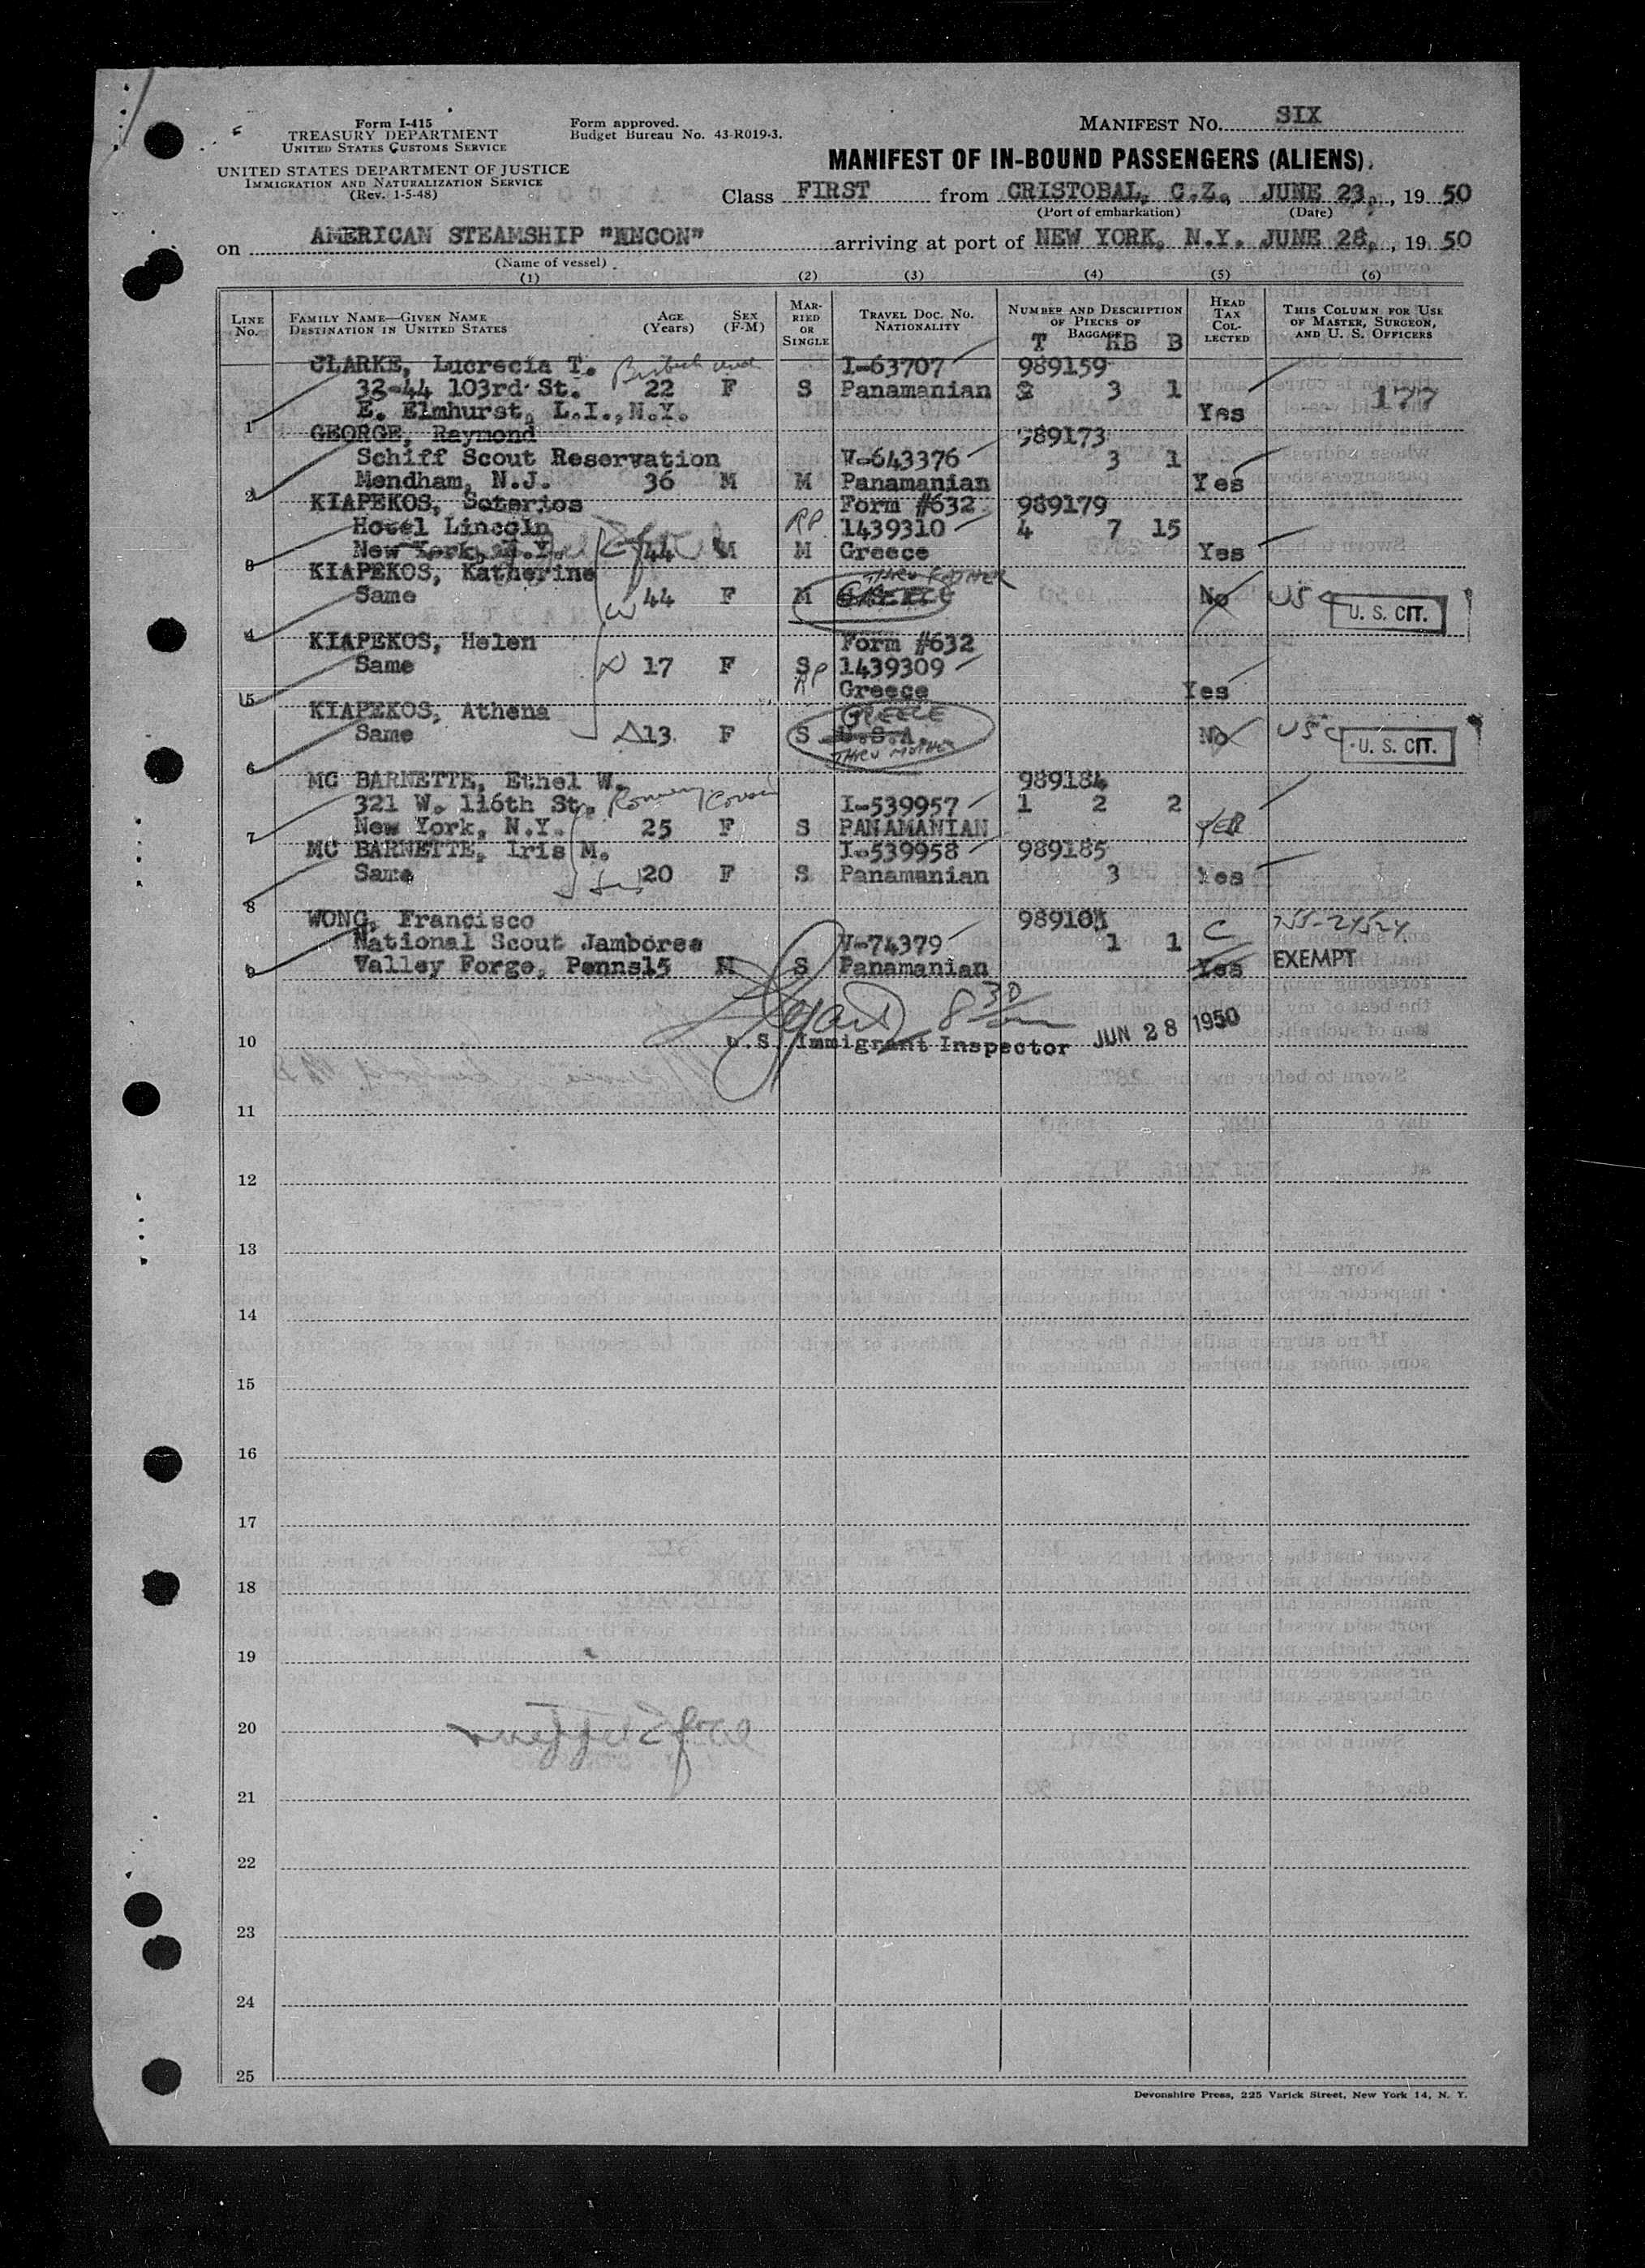 Form I-415
TREASURY DEPARTMENT
UNITED STATES CUSTOMS SERVICE
UNITED STATES DEPARTMENT OF JUSTICE
IMMIGRATION AND NATURALIZATION SERVICE
(Rev. 1-5-48)
Form approved.
Budget Bureau No. 43-R019-3.
MANIFEST NO. SIX
MANIFEST OF IN-BOUND PASSENGERS (ALIENS)
Class FIRST from CRISTOBAL, C.Z., JUNE 23, , 19 50
(Port of embarkation) (Date)
on AMERICAN STEAMSHIP "ANCON" arriving at port of NEW YORK, N.Y. JUNE 28, , 19 50
(Name of vessel)
(1) (2) (3) (4) (5) (6)
LINE No. FAMILY NAME—GIVEN NAME DESTINATION IN UNITED STATES AGE (Years) SEX (F-M) MARRIED OR SINGLE TRAVEL DOC. NO. NATIONALITY NUMBER AND DESCRIPTION OF PIECES OF BAGGAGE HEAD TAX COLLECTED THIS COLUMN FOR USE OF MASTER, SURGEON, AND U. S. OFFICERS
T HB B
CLARKE, Lucrecia T. I-63707 989159
32-44 103rd St. 22 F S Panamanian 2 3 1 177
1 E. Elmhurst, L.I.,N.Y. Yes
GEORGE, Raymond 989173
Schiff Scout Reservation V-643376 3 1
2 Mendham, N.J. 36 M M Panamanian Yes
KIAPEKOS, Soterios Form #632 989179
Hotel Lincoln RP 1439310 4 7 15
3 New York, N.Y. 44 M M Greece Yes
KIAPEKOS, Katherine THRU FATHER
Same W 44 F M GREECE No USC U. S. CIT.
4
KIAPEKOS, Helen Form #632
Same D 17 F S 1439309
5 RP Greece Yes
KIAPEKOS, Athena GREECE
Same D 13 F S U.S.A. No USC U. S. CIT.
6 THRU MOTHER
MC BARNETTE, Ethel W. 989184
321 W. 116th St. I-539957 1 2 2
7 New York, N.Y. 25 F S PANAMANIAN YES
MC BARNETTE, Iris M. I-539958 989185
Same 20 F S Panamanian 3 Yes
8
WONG, Francisco 989105 C
National Scout Jamboree V-74379 1 1
9 Valley Forge, Penns15 M S Panamanian Yes EXEMPT
8 30
10 U.S. Immigrant Inspector JUN 28 1950
11
12
13
14
15
16
17
18
19
20
21
22
23
24
25
Devonshire Press, 225 Varick Street, New York 14, N. Y.